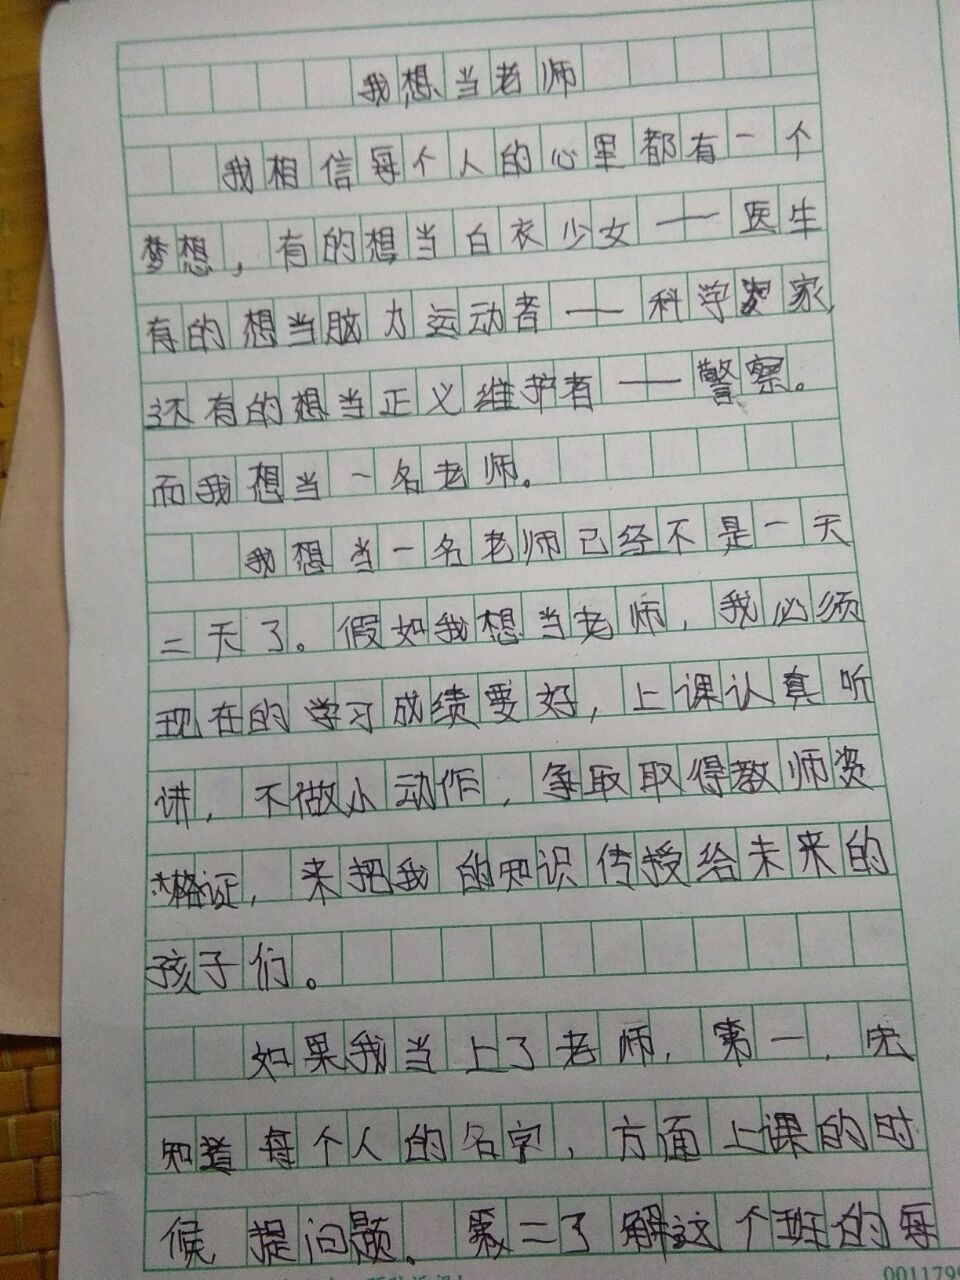 我想当老师
我相信每个人的心里都有一个
梦想，有的想当白衣少女——医生
有的想当脑力运动者——科学家，
还有的想当正义维护者——警察。
而我想当一名老师。
我想当一名老师已经不是一天
二天了。假如我想当老师，我必须
现在的学习成绩要好，上课认真听
讲，不做小动作，争取取得教师资
格证，来把我的知识传授给未来的
孩子们。
如果我当上了老师，第一，先
知道每个人的名字，方面上课的时
候提问题。第二了解这个班的每
0011799